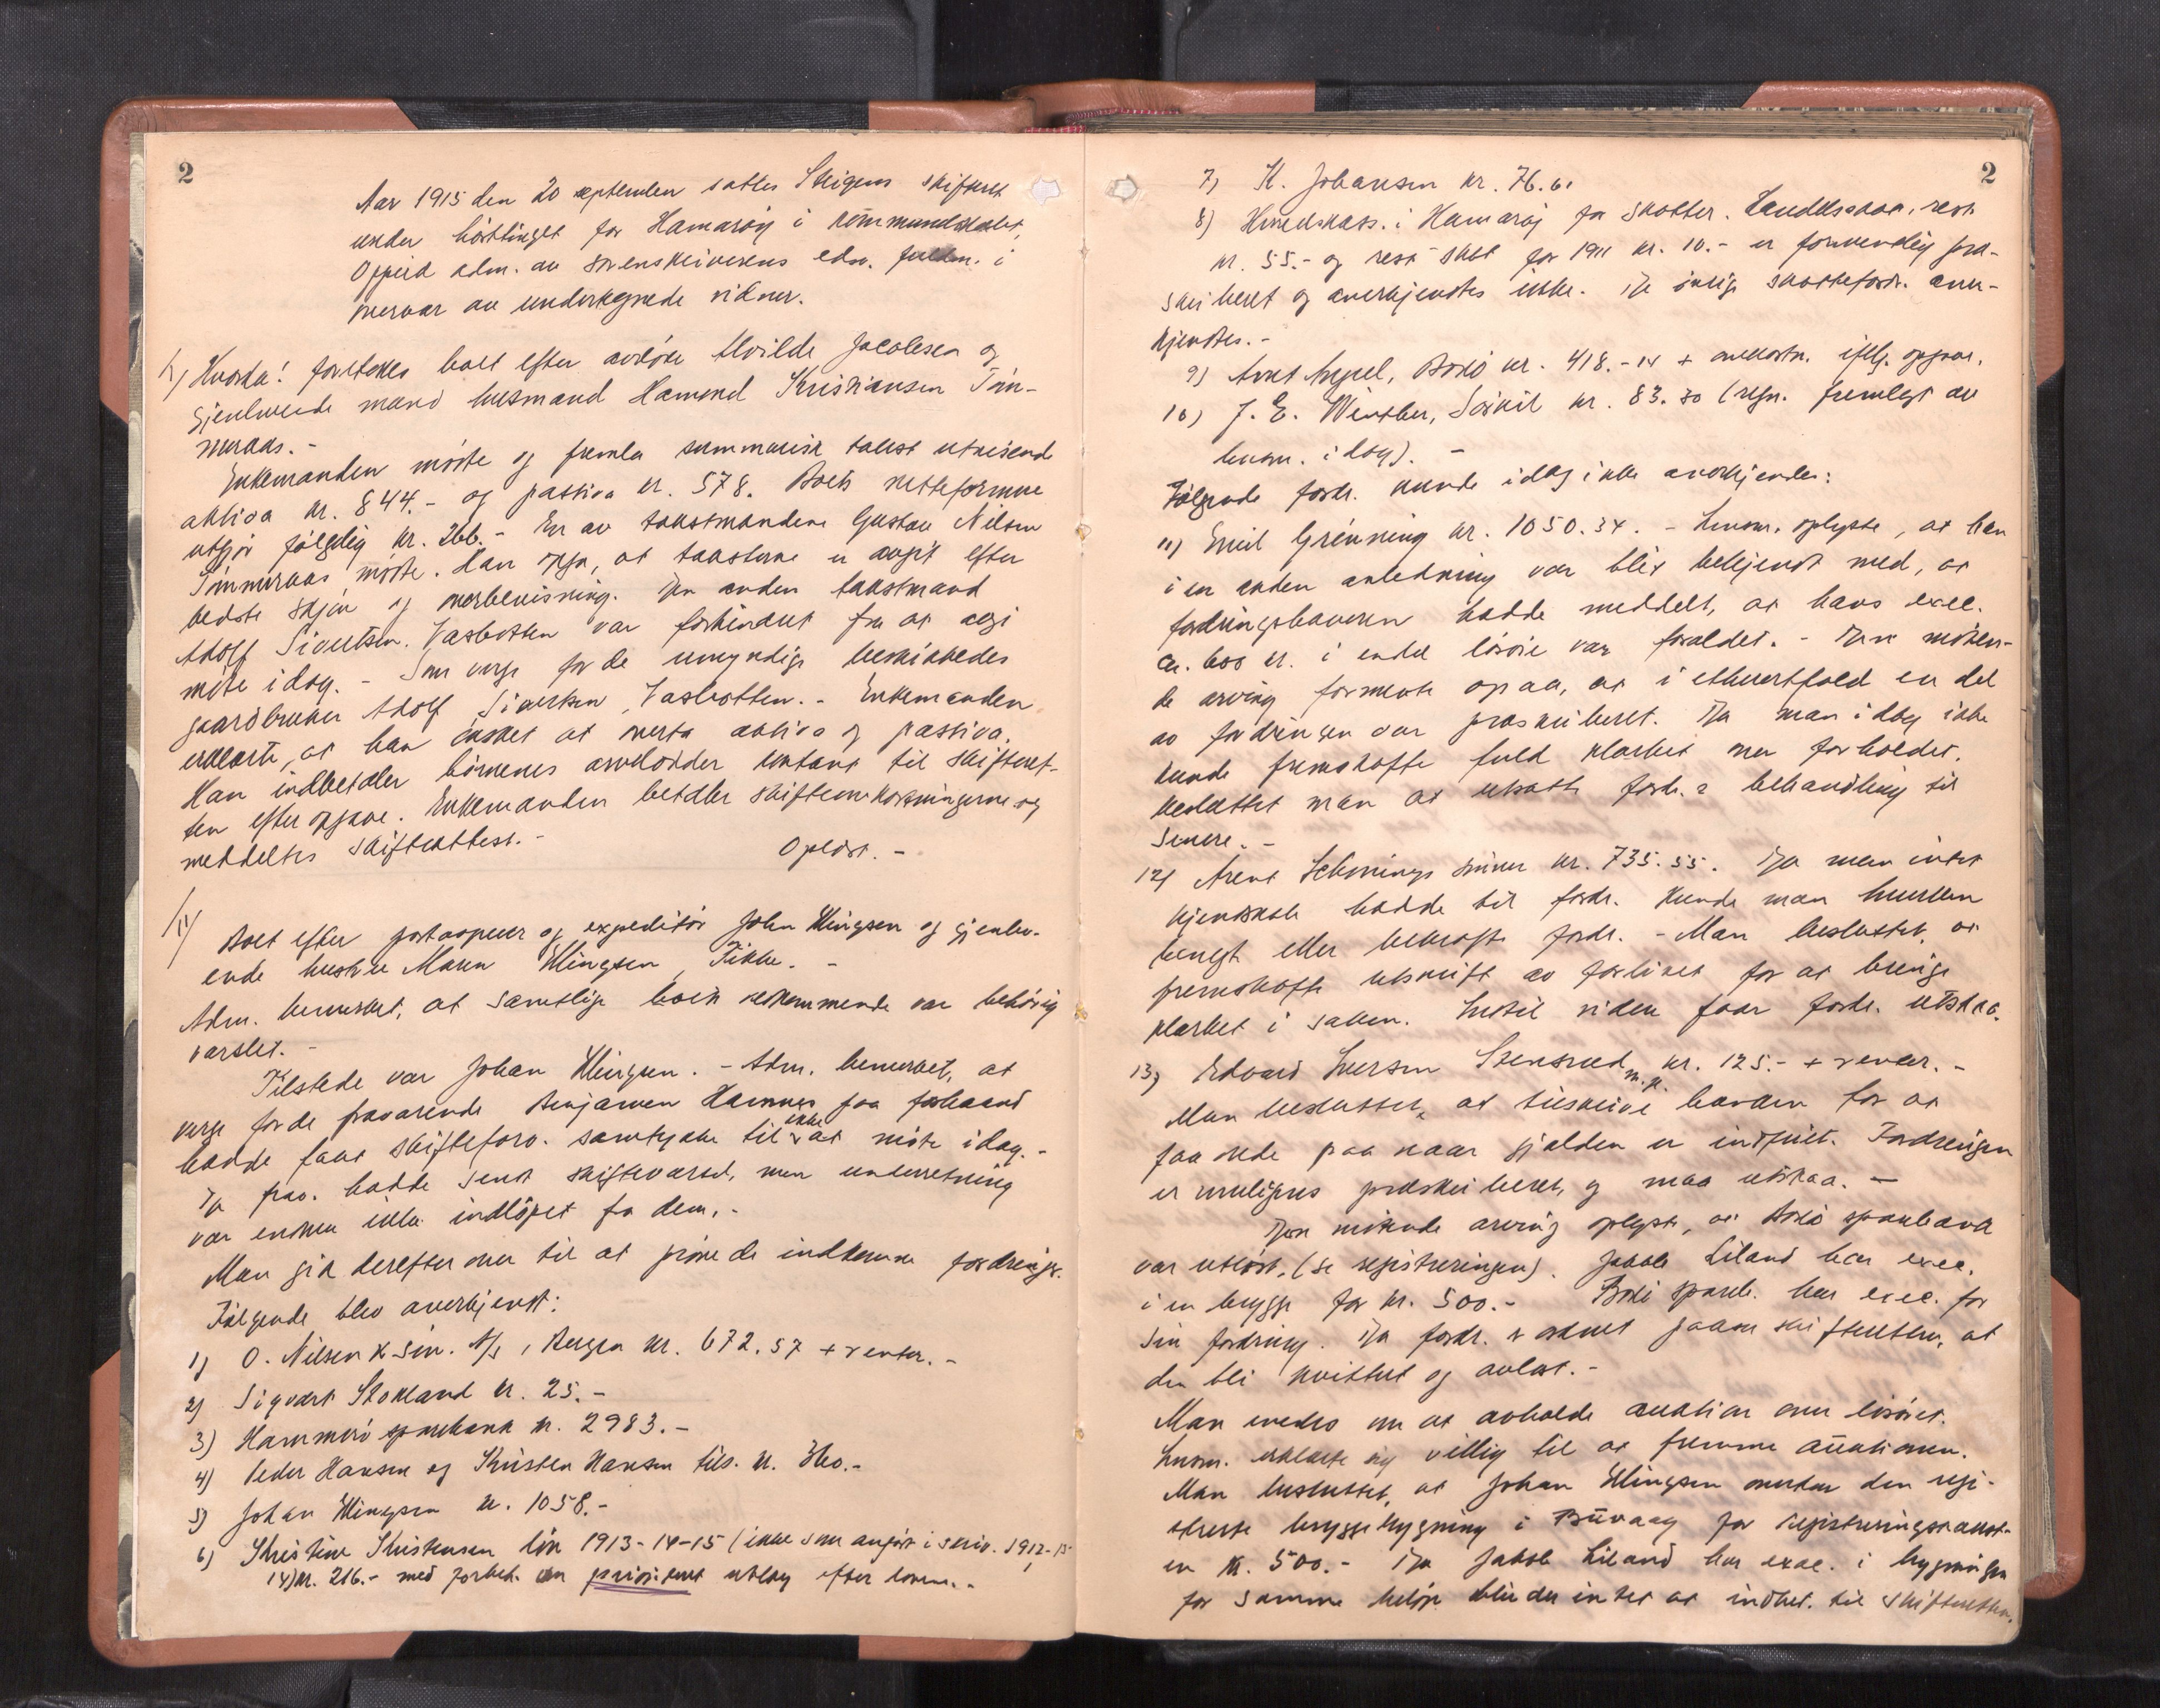 2
Aar 1915 den 20 september sattes Steigens skifteret
under hösttinget for Hamaröy i kommunelokalet,
Oppeid adm. av sorenskriverens edsv. fuldm. i
nervær av undertegnede vidner.
1) Hvorda: foretokes boet efter avdöde Alvilde Jacobsen og
gjenlevende mand husmand Hamond Kristiansen Töm-
meraas.-
Enkemanden mötte og fremla summarisk takst utvisende
aktiva kr. 844.- og passiva kr. 578. Boets nettoformue
utgjör fölgelig kr. 266.- En av takstmændene Gustav Nilsen
Tömmeraas mötte. Han opga, at taksterne er avgit efter
bedste skjön og overbevisning. Den anden takstmand
Adolf Sivertsen, Vasbotten var forhindret fra at avgi
möte idag. - Som verge for de umyndige beskikkedes
gaardbruker Adolf Sivertsen, Vasbotten. - Enkemanden
erklærte, at han önsket at overta aktiva og passiva.
Han indbetaler börnenes arvelodder kontant til skifteret-
ten efter opgave. Enkemanden betaler skifteomkostningerne og
meddeltes skifteattest.-
Oplæst.-
11)
Boet efter postaapner og expeditör John Elingsen og gjenlev-
ende hustru Maren Elingsen, Tikke. -
Adm. bemerket, at samtlige boet vedkommende var behörig
varslet. -
Tilstede var Johan Elingsen. - Adm. bemerket, at
verge for de fraværende Benjamin Hamnes paa forhaand
hadde faat skifteforv. samtykke til ikke at möte idag. -
Da frav. hadde sendt skiftevarsel, men underretning
var endnu ikke indlöpet fra dem. -
Man gik derefter over til at pröve de indkomne fordringer.
Fölgende blev anerkjendt:
1) O. Nilsen & Sön. A/S, Bergen kr. 672.57 + renter. -
2) Sigvart Stokland kr. 25. -
3) Hammerö sparebank kr. 2983. -
4) Peder Hansen og Kristen Hansen tils. kr. 360.-
5) Johan Elingsen kr. 1058.-
6) Kristine Kristensen lön 1913-14-15 (ikke som anfört i skriv. 1912-13
14) kr. 216.- med forbeh. om prioritert utlæg efter loven. -
2
7) K. Johansen kr. 76.61
8) Herredskass. i Hamaröj for skatter. Landsskat, rest
kr. 55.- og rest skat for 1911 kr. 10.- er formendlig præ-
skriberet og anerkjendtes ikke. De övrige skattefordr. aner-
kjendtes. -
9) Arnt Angel, Bodö kr. 418.-14 + omkostn. iflg. opgave.
10) J. E. Winther, Skjöit kr. 83.30 (regn. fremlagt av
lensm. idag). -
Fölgende fordr. kunde idag ikke anerkjendes:
11) Emil Grönning kr. 1050.34. - Lensm. oplyste, at han
i en anden anledning var blit bekjendt med, at
fordringshaveren hadde meddelt, at hans exec.
ca. 600 kr. i endel lösöre var foraldet. - Den möten-
de arving formente ogsaa, at i ethvertfald en del
av fordringen var præskriberet. Da man idag ikke
kunde fremskaffe fuld klarhet over forholdet,
besluttet man at utsætte fordr.s behandling til
senere. -
12) Arent Schönings sönner kr. 735.55. Da man intet
kjendskab hadde til fordr. kunde man hverken
benegte eller bekræfte fordr. - Man besluttet, at
fremskaffe utskrift av forliket for at bringe
klarhet i saken. Indtil videre faar fordr. utstaa.
13) Edvard Iversen Stensrud m. fl. kr. 125.- + renter. -
Man besluttet, at tilskrive banken for at
faa rede paa naar gjælden er indfriet. Fordringen
er muligens præskriberet, og maa utstaa. -
Den mötende arving oplyste, at Bodö sparebank
var utlöst, (se registreringen). Jakob Liland har exec.
i en brygge for kr. 500.- Bodö spareb. har exec. for
sin fordring. Da fordr. er ordnet paaser skifteretten, at
den bli kvittert og avlæst. -
Man enedes om at avholde auktion over lösöret.
Lensm. erklærte sig villig til at fremme auktionen.
Man besluttet, at Johan Elingsen overtar den regi-
strerte bryggebygning i Buvaag for registreringstakst-
en kr. 500.- Da Jakob Liland har exec. i bygningen
for samme belöp blir der intet at indbet. til skifteretten.